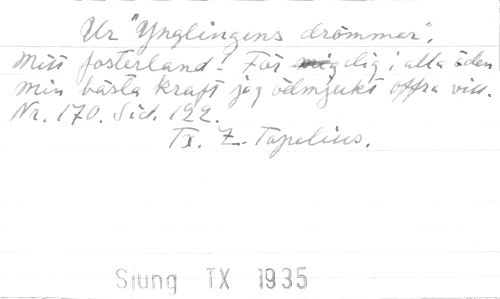 Ur "Ynglingens drömmar".
Mitt fosterland! För dig i alla öden
min bästa kraft jag ödmjukt offra vill.
Nr. 170. Sid. 122.
Tx. Z. Topelius.
Sjung IX 1935